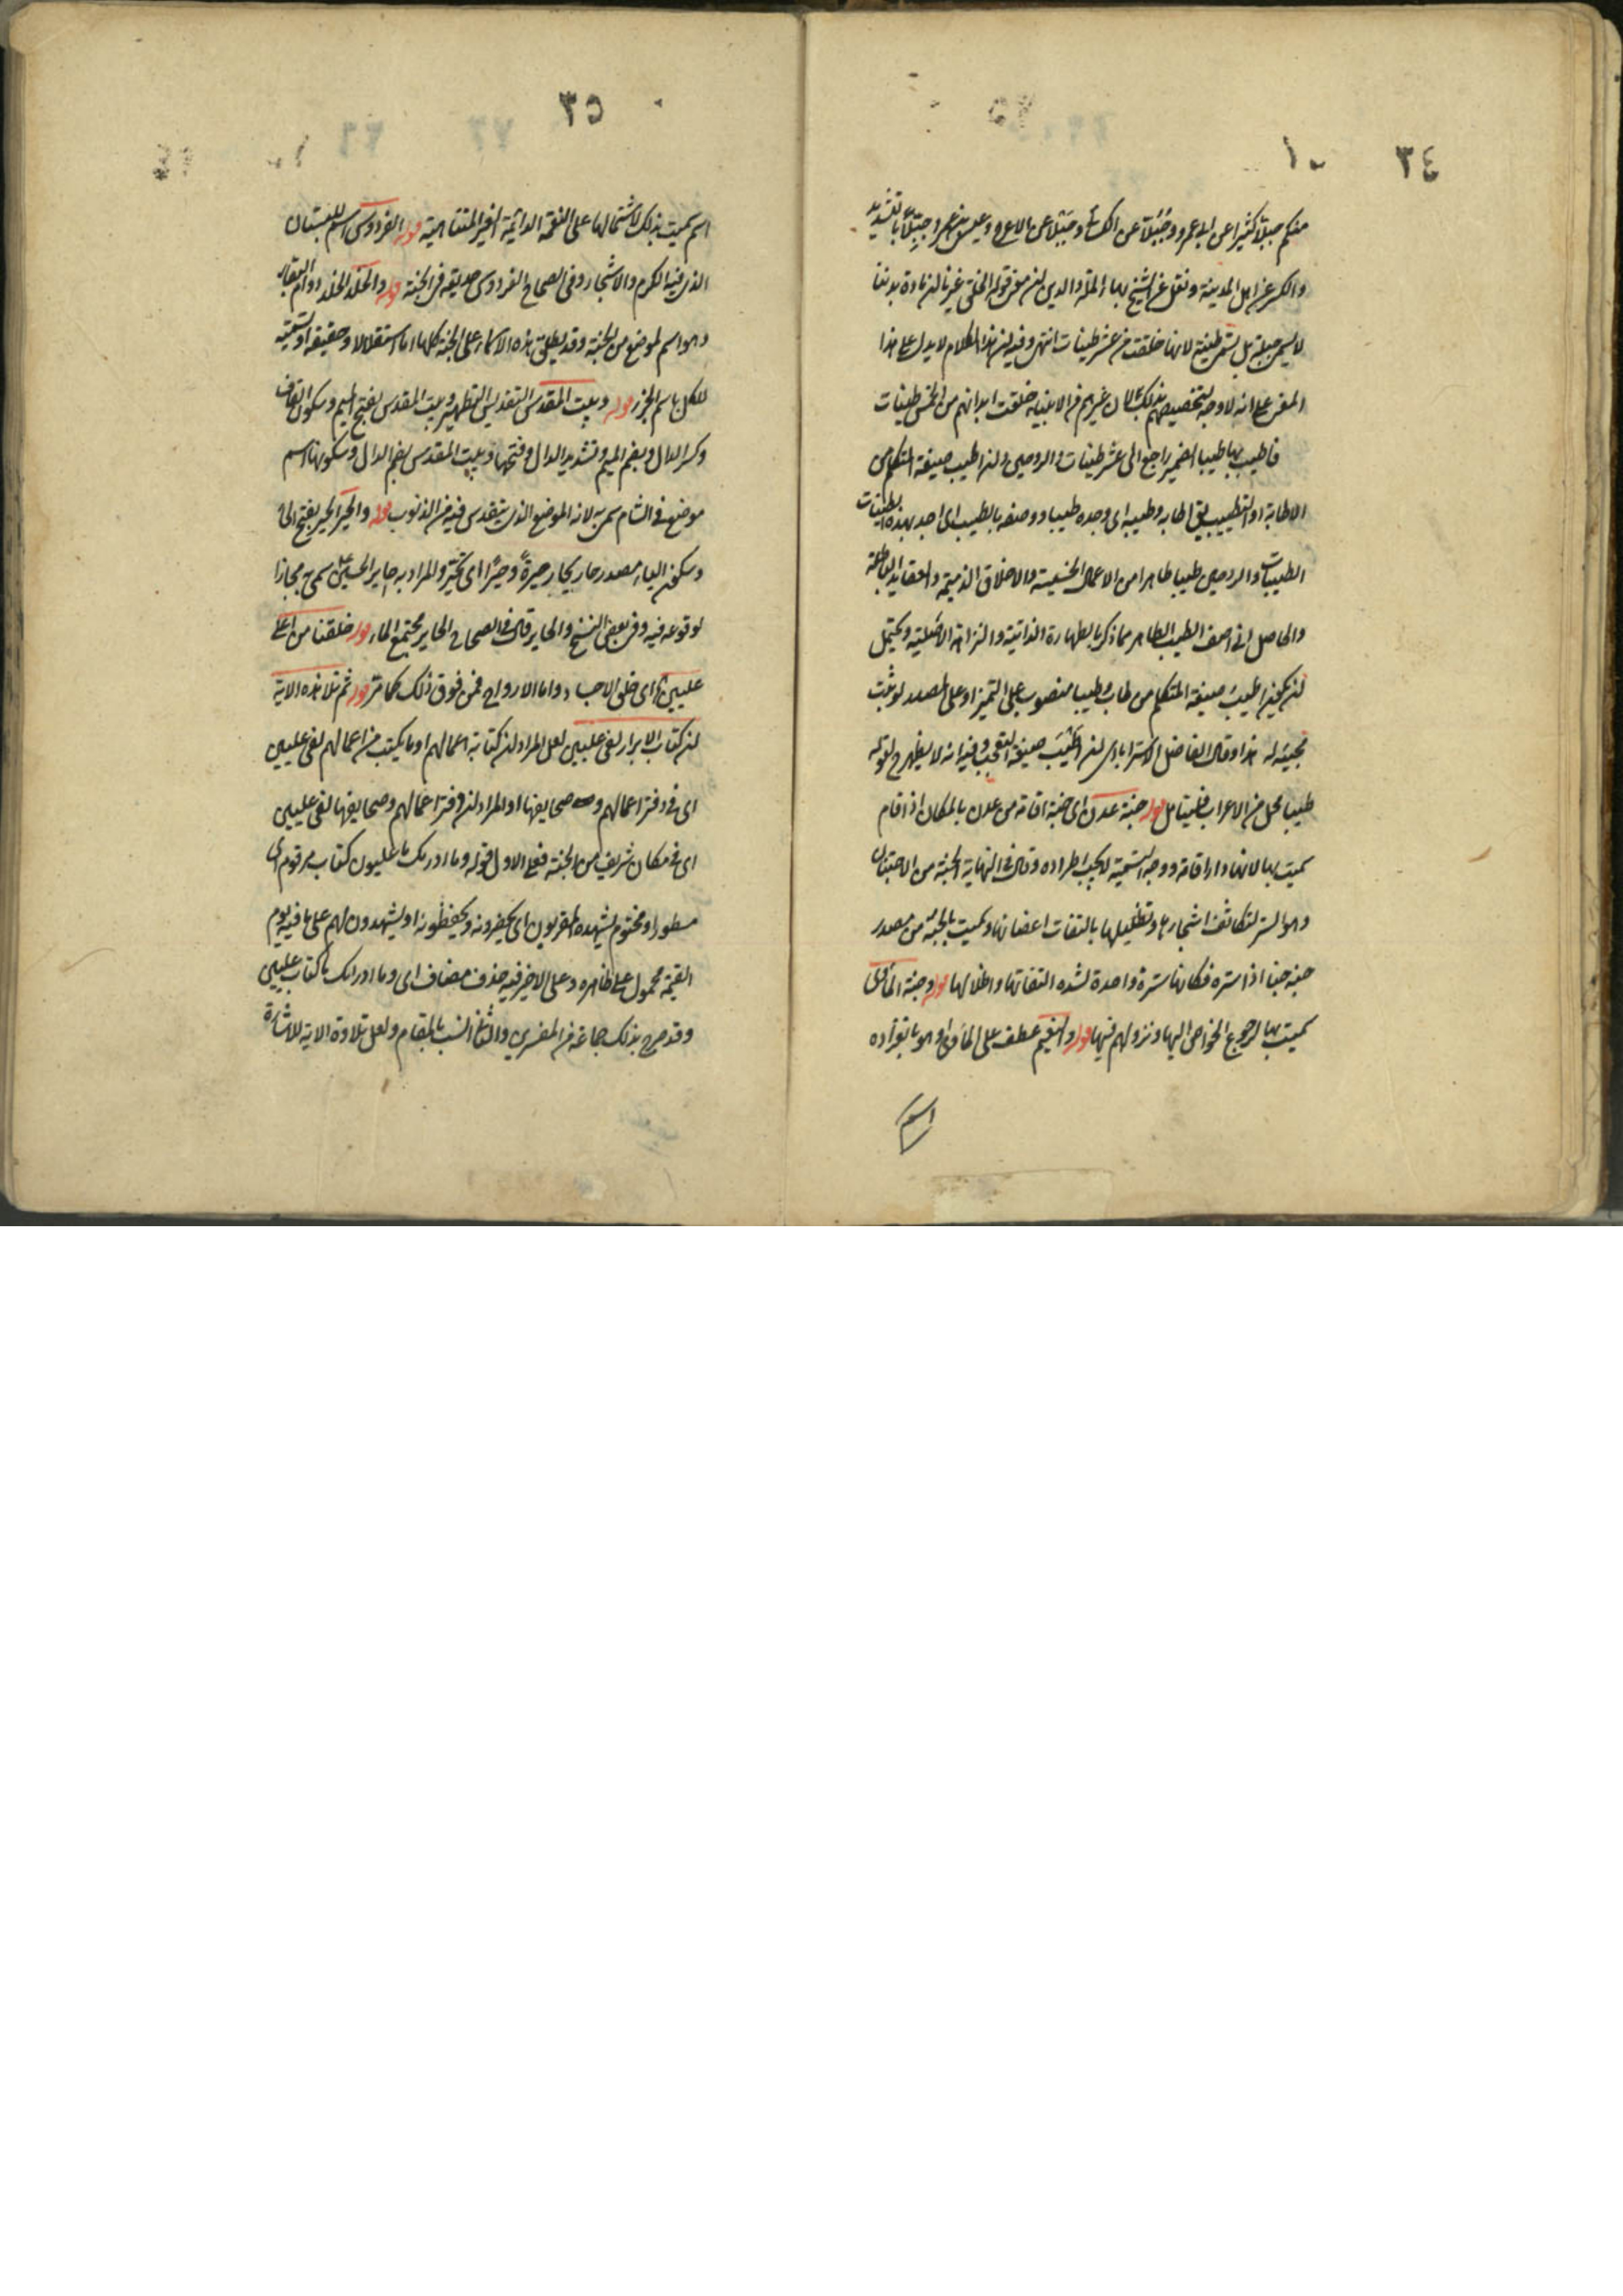 ٣٤
١٠
منكم جبلا كثيرا عن ابي عمرو وجُبُلا عن الكسائي وجبلا عن الاعرج وعيسى بن عمر وجِبِلّاً بالتشديد
والكسر عن اهل المدينة ونقل عن الشيخ بهاء الملة والدين ان معنى قوله الخلق غيرنا ان مادة بدننا
لا يسمى جبلة بل يسمى طينة لانها خلقت من عشر طينات انتهى وفيه ان هذا الكلام لا يدل على هذا
المعنى على انه لا وجه لتخصيصهم بذلك لان غيرهم من الانبياء خلقت ابدانهم من الخمس طينات
فاطيب بها طيبا الضمير راجع الى عشر طينات والروحين وان اطيب صيغة المتكلم من
الاطابة او التطييب يق اطابه وطيبه اى وجده طيبا ووصفه بالطيب اى اجد بهذه الطينات
الطيبات والروحين طيبا طاهرا من الاعمال الخسيسة والاخلاق الذميمة والعقايد الباطلة
والحاصل انى اصف الطيب الطاهر مما ذكر بالطهارة الذاتية والنزاهة الاصلية ويحتمل
ان يكون اطيب صيغة المتكلم من طاب وطيبا منصوب على التميز او على المصدر لو ثبت
مجيئه له هذا وقال الفاضل الاسترابادى ان اطيب صيغة التعجب وفيه انه لا يظهر ح لقوله
طيبا محل من الاعراب فليتامل قوله جنة عدن اى جنة اقامة من عدن بالمكان اذا اقام
سميت بها لانها دار اقامة ووجه التسمية لا يجب اطراده وقال فى النهاية الجنة من الاجتنان
وهو الستر لتكاثف اشجارها وتظليلها بالتفات اغصانها وسميت بالجنة من مصدر
جنه جنا اذا ستره فكانها سترة واحدة لشدة التفاتها واظلالها قوله وجنة الماوى
سميت بها لرجوع الخواص اليها ونزولهم فيها قوله والنعيم عطف على الماوى وهو بانفراده
اسم
٣٥
اسم سميت بذلك لاشتمالها على النعمة الدائمة الغير المتناهية قوله الفردوس اسم للبستان
الذى فيه الكرم والاشجار وفى الصحاح الفردوس حديقة فى الجنة قوله والخلد الخلد دوام البقاء
وهو اسم لموضع من الجنة وقد يطلق هذه الاسماء على الجنة كلها اما استقلالا وحقيقة او تسمية
للكل باسم الجزء قوله وبيت المقدس التقديس التطهير وبيت المقدس بفتح الميم وسكون القاف
وكسر الدال وبضم الميم وتشديد الدال وفتحها وبيت المقدس بضم الدال وسكونها اسم
موضع فى الشام سمى به لانه الموضع الذى يتقدس فيه من الذنوب قوله والحير الحير بفتح الحاء
وسكون الياء مصدر حار يحار حيرة وحيرا اى تحير والمراد به حاير الحسين ع سمى به مجازا
لوقوعه فيه وفى بعض النسخ والحاير قال فى الصحاح الحاير مجتمع الماء قوله خلقنا من اعلى
عليين اى خلق الاجساد واما الارواح فمن فوق ذلك كما مر قوله ثم تلا هذه الاية
ان كتاب الابرار لفى عليين لعل المراد ان كتابة اعمالهم او ما يكتب من اعمالهم لفى عليين
اى فى دفتر اعمالهم و صحايفها او المراد ان دفتر اعمالهم وصحايفها لفى عليين
اى فى مكان شريف من الجنة فعلى الاول قوله وما ادريك ما عليون كتاب مرقوم اى
مسطور او مختوم يشهده المقربون اى يحضرونه ويحفظونه او يشهدون لهم على ما فيه يوم
القيمة محمول على ظاهره وعلى الاخير فيه حذف مضاف اى وما ادراك ما كتاب عليين
وقد صرح بذلك جماعة من المفسرين والثانى انسب بالمقام ولعل تلاوة الاية للاشارة